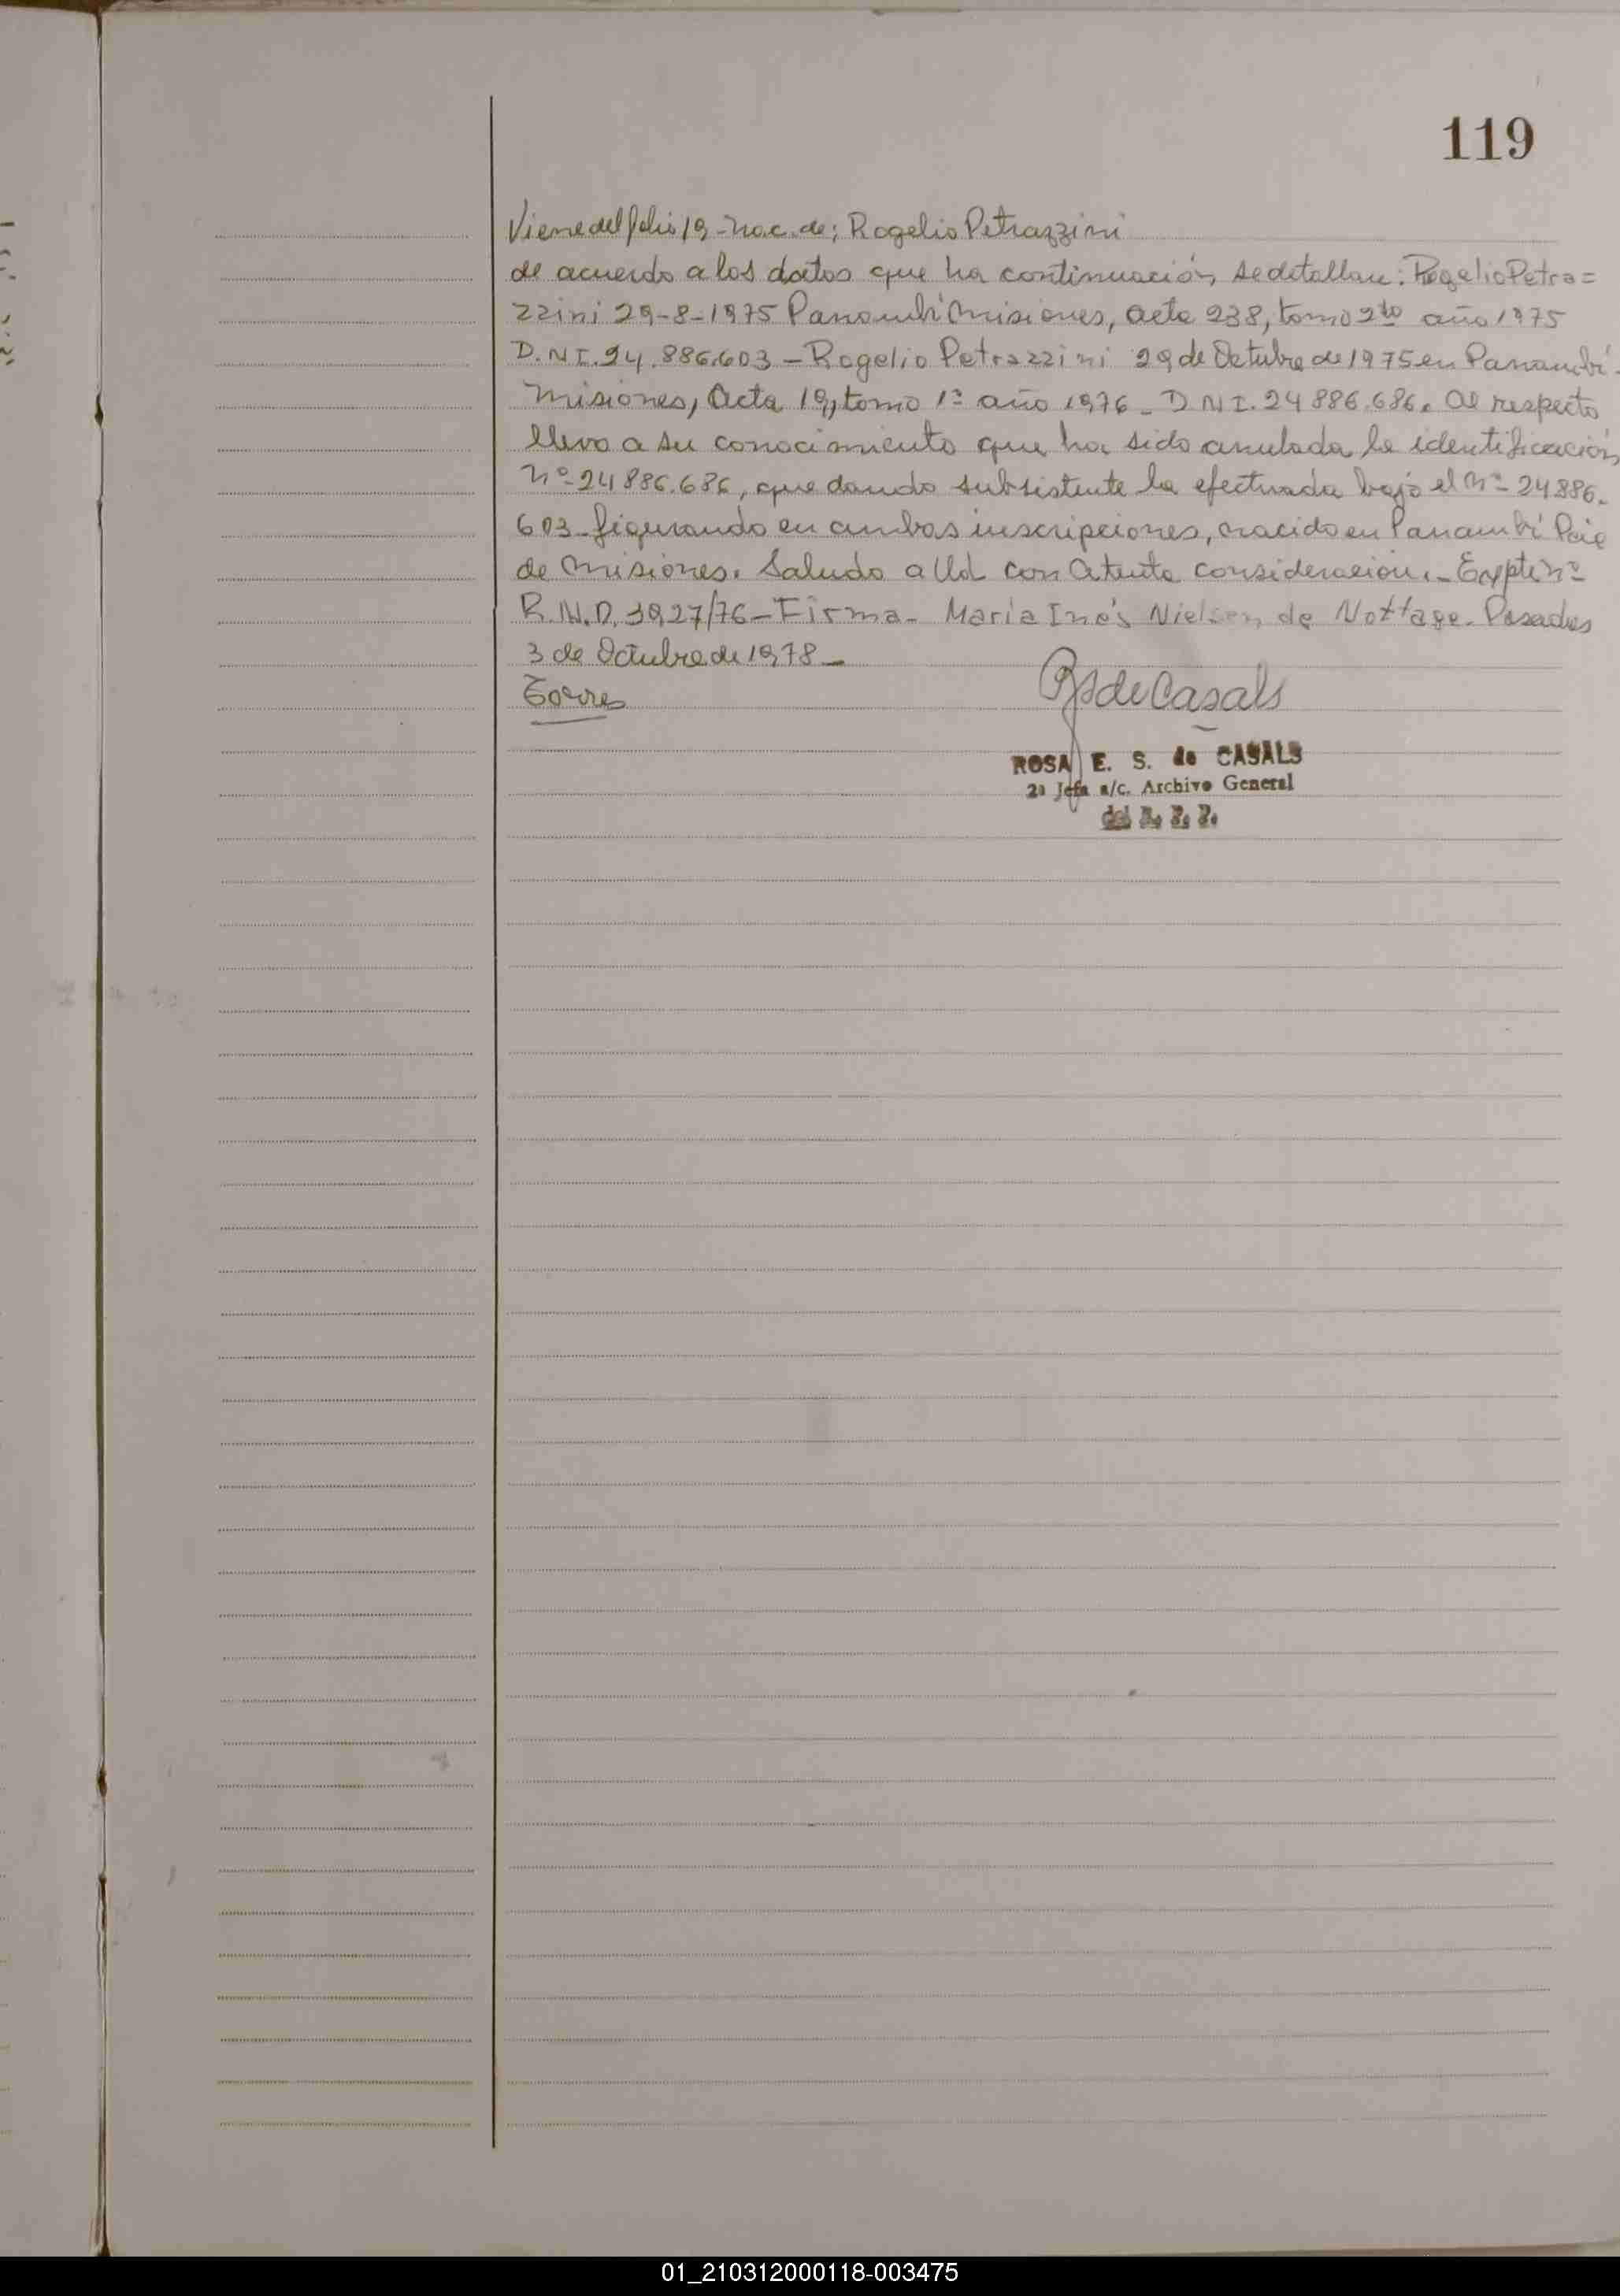 119
Viene del folio 19 - nac. de; Rogelio Petrazzini
de acuerdo a los datos que ha continuación, se detallan: Rogelio Petra=
zzini 29-8-1975 Panambí Misiones, acta 238, tomo 2to año 1975
D.N.I. 24.886.603 - Rogelio Petrazzini 29 de Octubre de 1975 en Panambí -
Misiones, Acta 19, tomo 1º año 1976 - D N I. 24 886.686. Al respecto
llevo a su conocimiento que ha sido anulada la identificación
nº 24 886.686, quedando subsistente la efectuada bajo el nº 24886.
603 - figurando en ambas inscripciones, nacido en Panambí Pcia
de Misiones. Saludo a Ud con Atenta consideración. - Expte nº
R.N.P. 3927/76 - Firma - Maria Inés Nielsen de Nottage - Posadas
3 de Octubre de 1978 -
Torres
RsdeCasals
ROSA E. S. de CASALS
2ª Jefa a/c. Archivo General
del R. P. P.
01_210312000118-003475